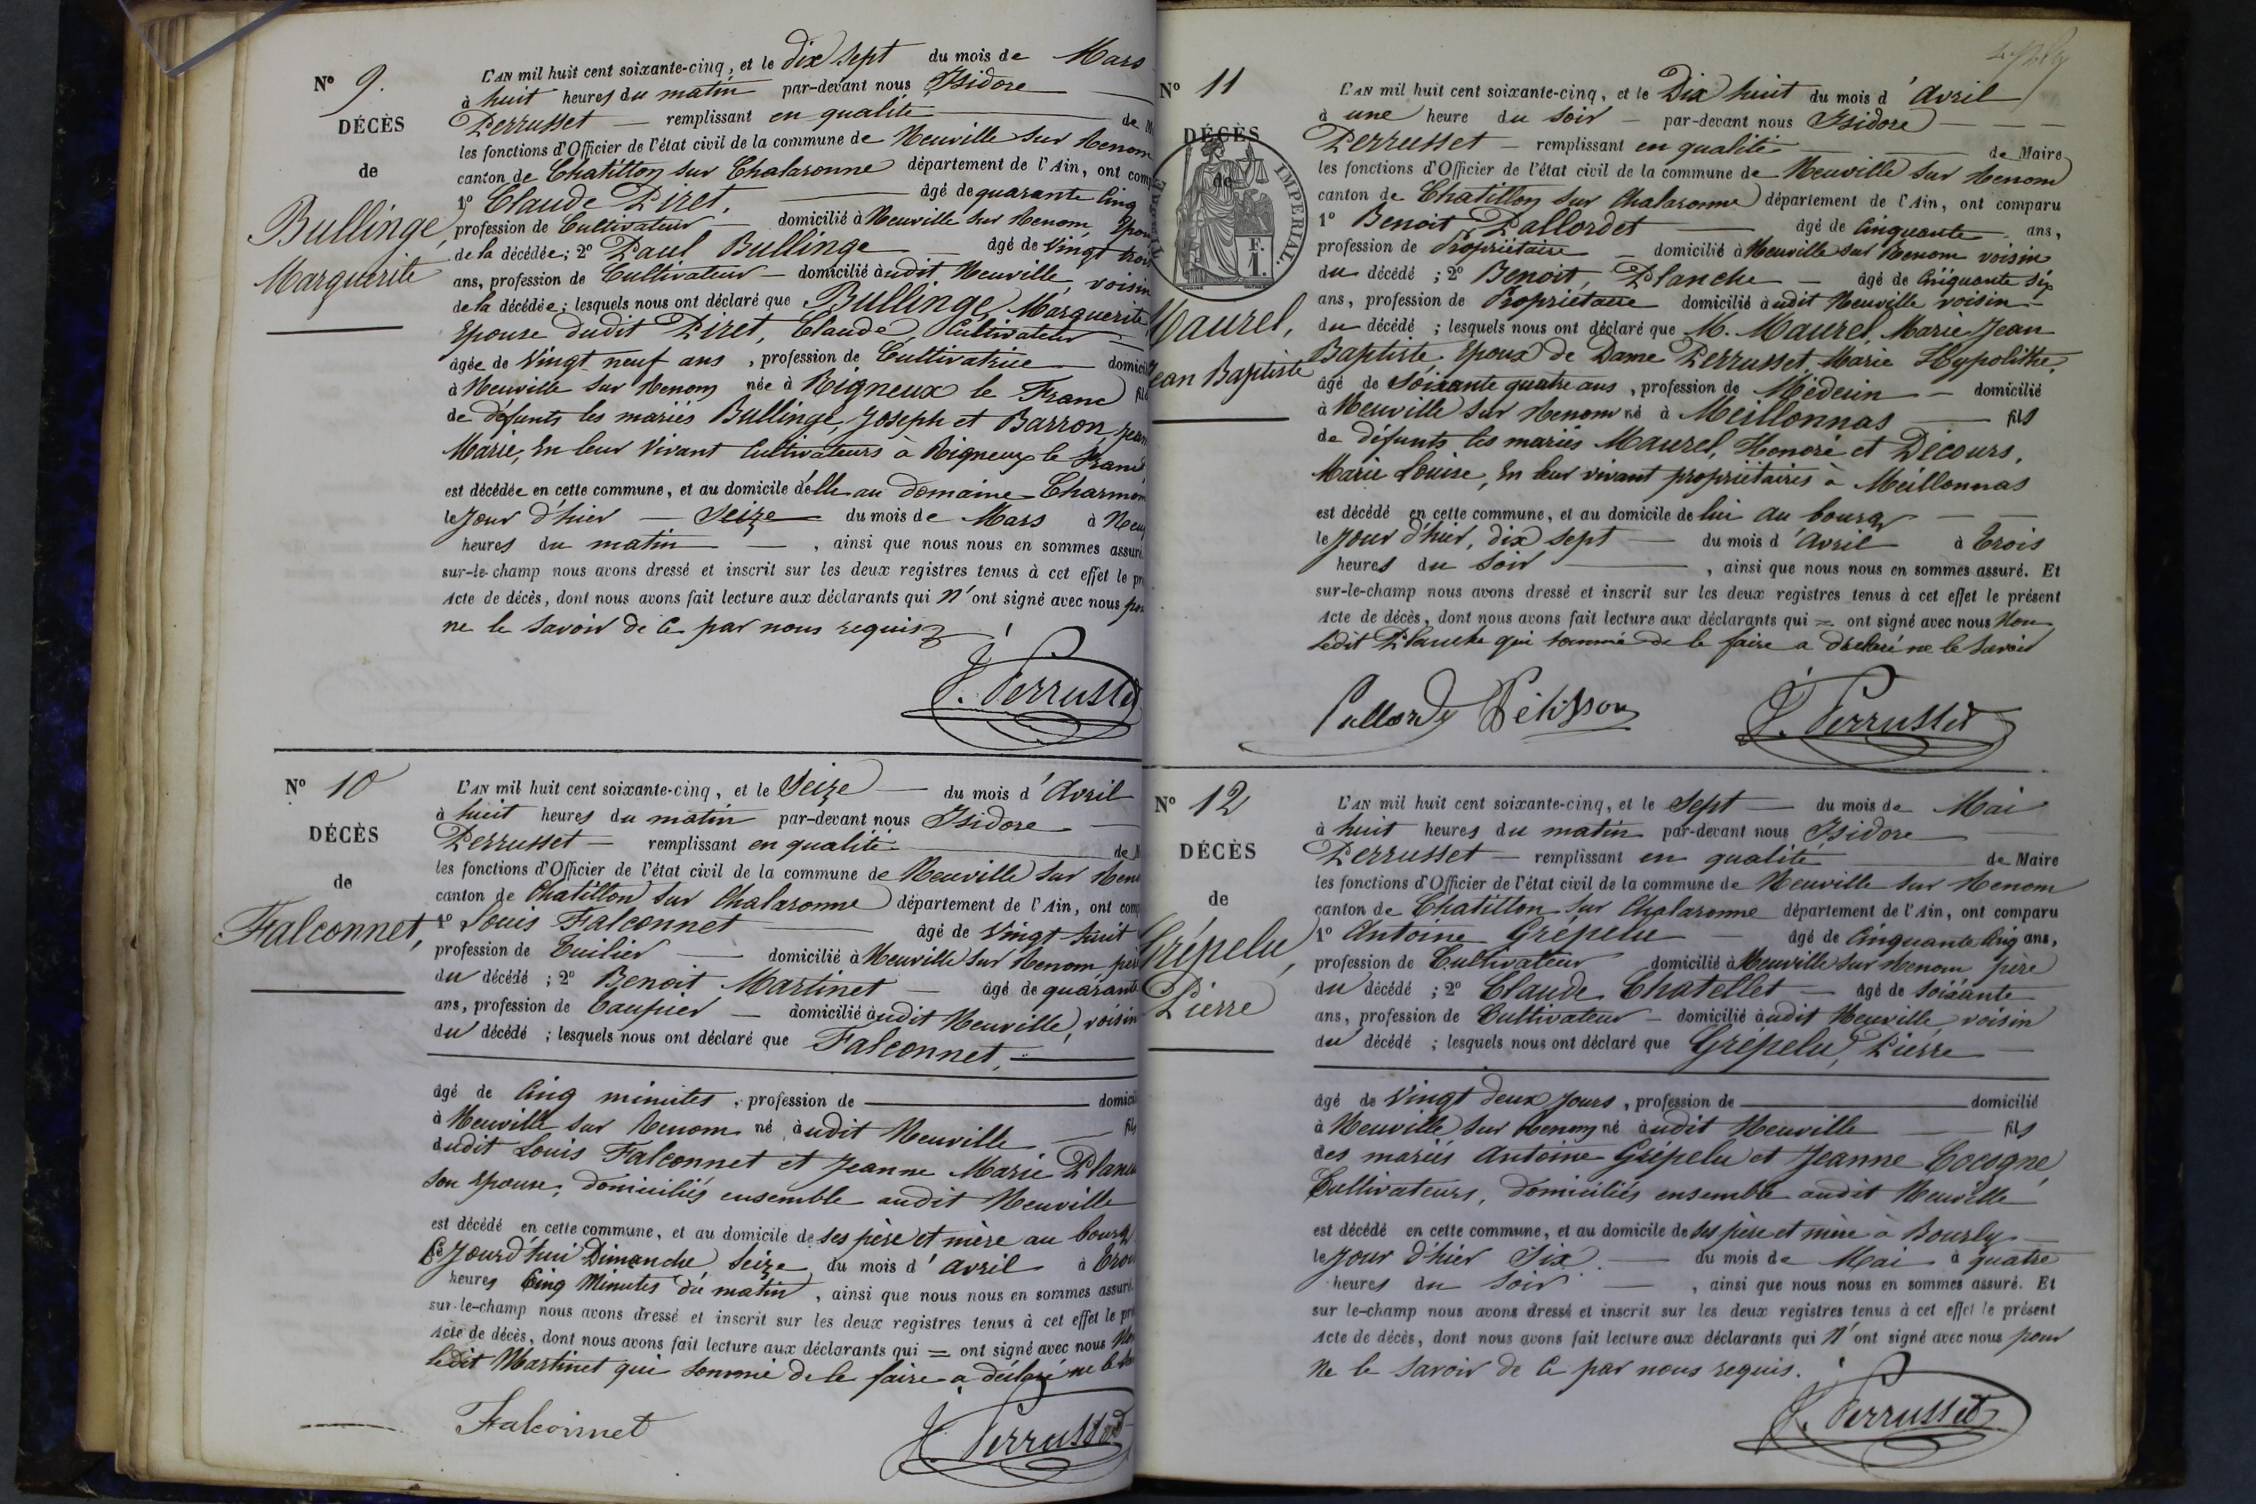 Nº 9.
DÉCÈS
de
Bullinge,
Marguerite
L'AN mil huit cent soixante-cinq, et le dix sept du mois de Mars
à huit heures du matin par-devant nous Isidore
Perrusset remplissant en qualité de
les fonctions d'Officier de l'état civil de la commune de Neuville sur Renom
canton de Chatillon sur Chalaronne département de l'Ain, ont comp
1º Claude Piret, âgé de quarante cinq
profession de Cultivateur domicilié à Neuville sur Renom, Epou
de la décédée; 2º Paul Bullinge âgé de vingt trois
ans, profession de Cultivateur domicilié audit Neuville, voisin
de la décédée; lesquels nous ont déclaré que Bullinge, Marguerite
Epouse dudit Piret, Claude, Cultivateur
âgée de vingt neuf ans, profession de Cultivatrice domicil
à Neuville sur Renom née à Rigneux le Franc fil
de défunts les mariés Bullinge, Joseph et Barron, Jean
Marie, En leur vivant Cultivateurs à Rigneux le Franc
est décédée en cette commune, et au domicile d'elle au domaine Charmon
le jour d'hier Seize du mois de Mars à Neuf
heures du matin, ainsi que nous nous en sommes assuré.
sur-le-champ nous avons dressé et inscrit sur les deux registres tenus à cet effet le pr
Acte de décès, dont nous avons fait lecture aux déclarants qui n'ont signé avec nous pour
ne le savoir de ce par nous requis
I. Perrusset
Nº 10
DÉCÈS
de
Falconnet,
L'AN mil huit cent soixante-cinq, et le Seize du mois d'Avril
à huit heures du matin par-devant nous Isidore
Perrusset remplissant en qualité de M
les fonctions d'Officier de l'état civil de la commune de Neuville sur Reno
canton de Chatillon sur Chalaronne département de l'Ain, ont comp
1º Louis Falconnet âgé de vingt huit
profession de Tuilier domicilié à Neuville sur Renom, père
du décédé; 2º Benoit Martinet âgé de quarante
ans, profession de Taupier domicilié audit Neuville, voisin
du décédé; lesquels nous ont déclaré que Falconnet,
âgé de cinq minutes, profession de domicil
à Neuville sur Renom né audit Neuville fils
dudit Louis Falconnet et Jeanne Marie Planc
son épouse, domiciliés ensemble audit Neuville
est décédé en cette commune, et au domicile de ses père et mère au bourg
Ce Jourd'hui Dimanche Seize du mois d'avril à Trois
heures Cinq Minutes du matin, ainsi que nous nous en sommes assuré.
sur-le-champ nous avons dressé et inscrit sur les deux registres tenus à cet effet le pré
Acte de décès, dont nous avons fait lecture aux déclarants qui = ont signé avec nous Non
ledit Martinet qui sommé de le faire a déclaré ne le sav
Falconnet
I. Perrusset
Nº 11
DÉCÈS
de
IMPERIAL.
F.
1.
Maurel,
Jean Baptiste
L'AN mil huit cent soixante-cinq, et le Dix huit du mois d'Avril
à une heure du soir par-devant nous Isidore
Perrusset remplissant en qualité de Maire
les fonctions d'Officier de l'état civil de la commune de Neuville sur Renom
canton de Chatillon sur Chalaronne département de l'Ain, ont comparu
1º Benoit Pallordet âgé de Cinquante ans,
profession de Propriétaire domicilié à Neuville sur Renom voisin
du décédé; 2º Benoit, Planche âgé de Cinquante six
ans, profession de Propriétaire domicilié audit Neuville voisin
du décédé; lesquels nous ont déclaré que M. Maurel, Marie Jean
Baptiste Epoux de Dame Perrusset, Marie Hypolithe,
âgé de Soixante quatre ans, profession de Médecin domicilié
à Neuville sur Renom né à Meillonnas fils
de défunts les mariés Maurel, Honoré et Décours,
Marie Louise, En leur vivant propriétaires à Meillonnas
est décédé en cette commune, et au domicile de lui au bourg
le jour d'hier, dix sept du mois d'Avril à Trois
heures du Soir, ainsi que nous nous en sommes assuré. Et
sur-le-champ nous avons dressé et inscrit sur les deux registres tenus à cet effet le présent
Acte de décès, dont nous avons fait lecture aux déclarants qui = ont signé avec nous Non
ledit Planche qui sommé de le faire a déclaré ne le savoir
Pellisson I. Perrusset
Nº 12
DÉCÈS
de
Grépelu,
Pierre
L'AN mil huit cent soixante-cinq, et le Sept du mois de Mai
à huit heures du matin par-devant nous Isidore
Perrusset remplissant en qualité de Maire
les fonctions d'Officier de l'état civil de la commune de Neuville sur Renom
canton de Chatillon sur Chalaronne département de l'Ain, ont comparu
1º Antoine Grépelu âgé de Cinquante Cinq ans,
profession de Cultivateur domicilié à Neuville sur Renom père
du décédé; 2º Claude Chatellet âgé de soixante
ans, profession de Cultivateur domicilié audit Neuville, voisin
du décédé; lesquels nous ont déclaré que Grépelu, Pierre
âgé de vingt deux jours, profession de domicilié
à Neuville sur Renom né audit Neuville fils
des mariés Antoine Grépelu et Jeanne Cocogne,
Cultivateurs, domiciliés ensemble audit Neuville
est décédé en cette commune, et au domicile de ses père et mère à Bourly
le jour d'hier Six du mois de Mai à quatre
heures du soir, ainsi que nous nous en sommes assuré. Et
sur le-champ nous avons dressé et inscrit sur les deux registres tenus à cet effet le présent
Acte de décès, dont nous avons fait lecture aux déclarants qui n'ont signé avec nous pour
ne le savoir de ce par nous requis.
I. Perrusset